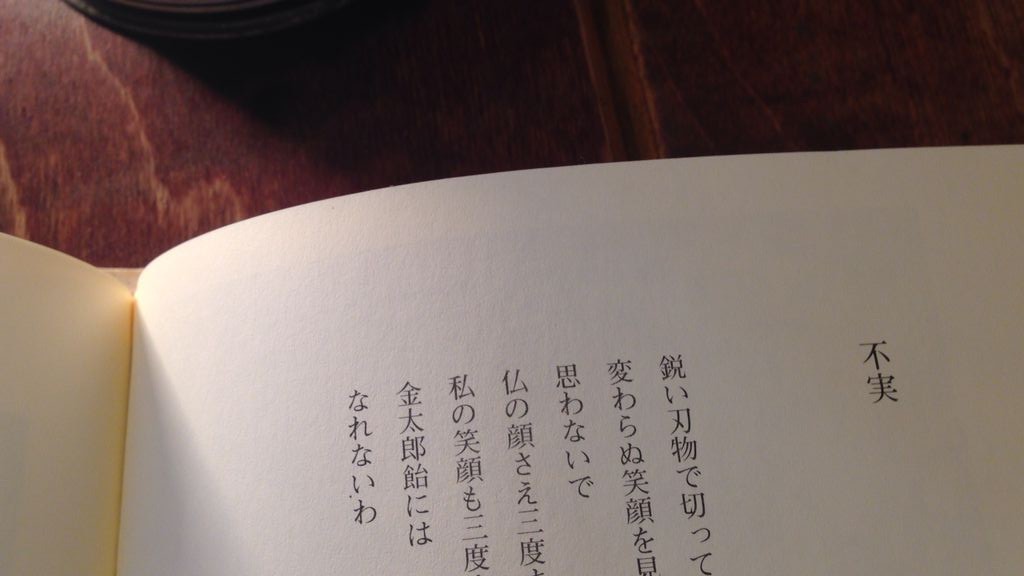 不実
鋭い刃物で切って
変わらぬ笑顔を見
思わないで
仏の顔さえ三度
私の笑顔も三度
金太郎飴には
なれないわ